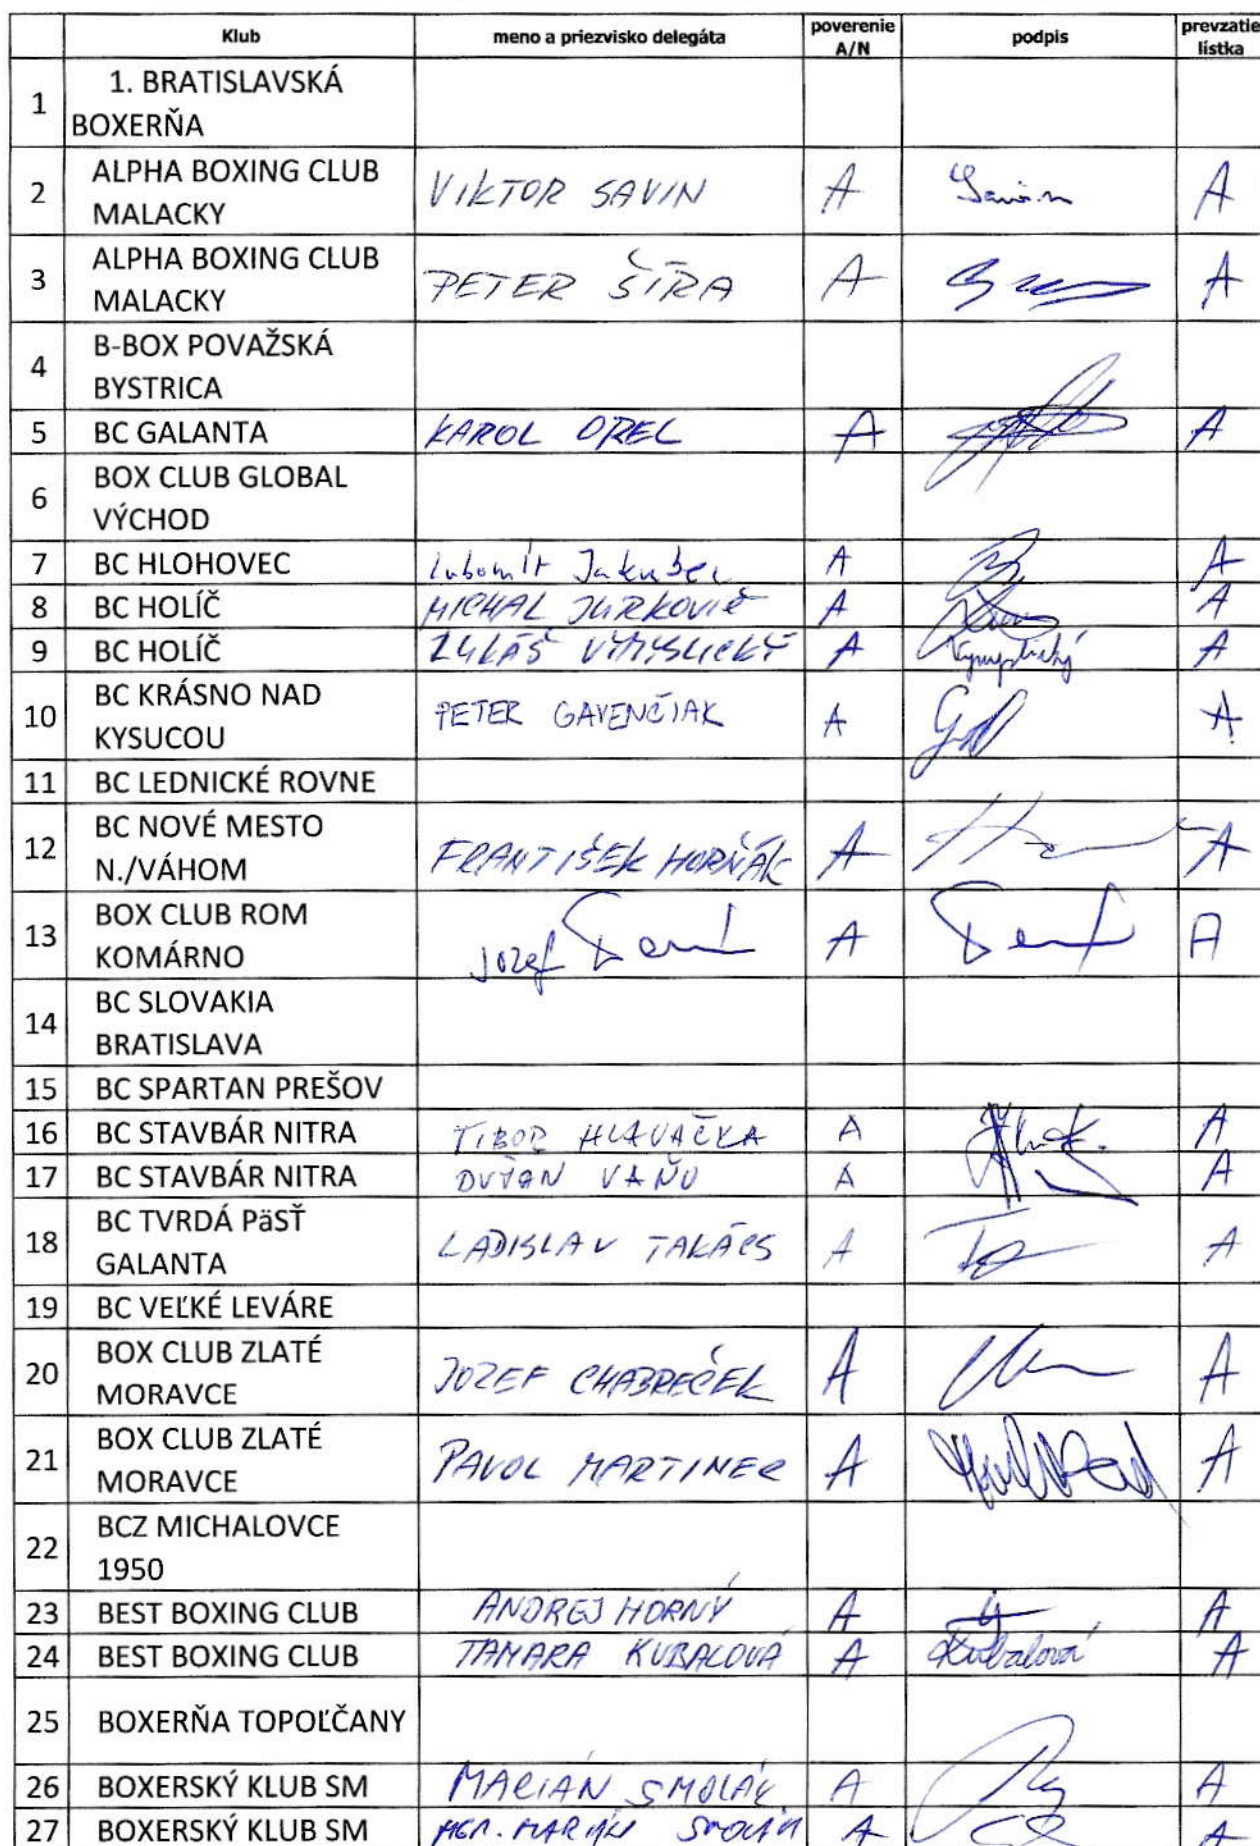 Klub meno a priezvisko delegáta poverenie A/N podpis prevzatie lístka
1 1. BRATISLAVSKÁ
BOXERŇA
2 ALPHA BOXING CLUB
MALACKY VIKTOR SAVIN A A
3 ALPHA BOXING CLUB
MALACKY PETER ŠÍRA A A
4 B-BOX POVAŽSKÁ
BYSTRICA
5 BC GALANTA KAROL OREL A A
6 BOX CLUB GLOBAL
VÝCHOD
7 BC HLOHOVEC Ľubomír Jakubec A A
8 BC HOLÍČ MICHAL JURKOVIČ A A
9 BC HOLÍČ LUKÁŠ VYMYSLICKÝ A Vymyslický A
10 BC KRÁSNO NAD
KYSUCOU PETER GAVENČIAK A A
11 BC LEDNICKÉ ROVNE
12 BC NOVÉ MESTO
N./VÁHOM FRANTIŠEK HORŇÁK A A
13 BOX CLUB ROM
KOMÁRNO Jozef A A
14 BC SLOVAKIA
BRATISLAVA
15 BC SPARTAN PREŠOV
16 BC STAVBÁR NITRA TIBOR HLAVAČKA A A
17 BC STAVBÁR NITRA DUŠAN VAŇO A A
18 BC TVRDÁ PäSŤ
GALANTA LADISLAV TAKÁCS A A
19 BC VEĽKÉ LEVÁRE
20 BOX CLUB ZLATÉ
MORAVCE JOZEF CHABREČEK A A
21 BOX CLUB ZLATÉ
MORAVCE PAVOL MARTINEC A A
22 BCZ MICHALOVCE
1950
23 BEST BOXING CLUB ANDREJ HORNÝ A A
24 BEST BOXING CLUB TAMARA KUBALOVÁ A Kubalová A
25 BOXERŇA TOPOĽČANY
26 BOXERSKÝ KLUB SM MARIÁN SMOLÁK A A
27 BOXERSKÝ KLUB SM MGR. MARIÁN A A